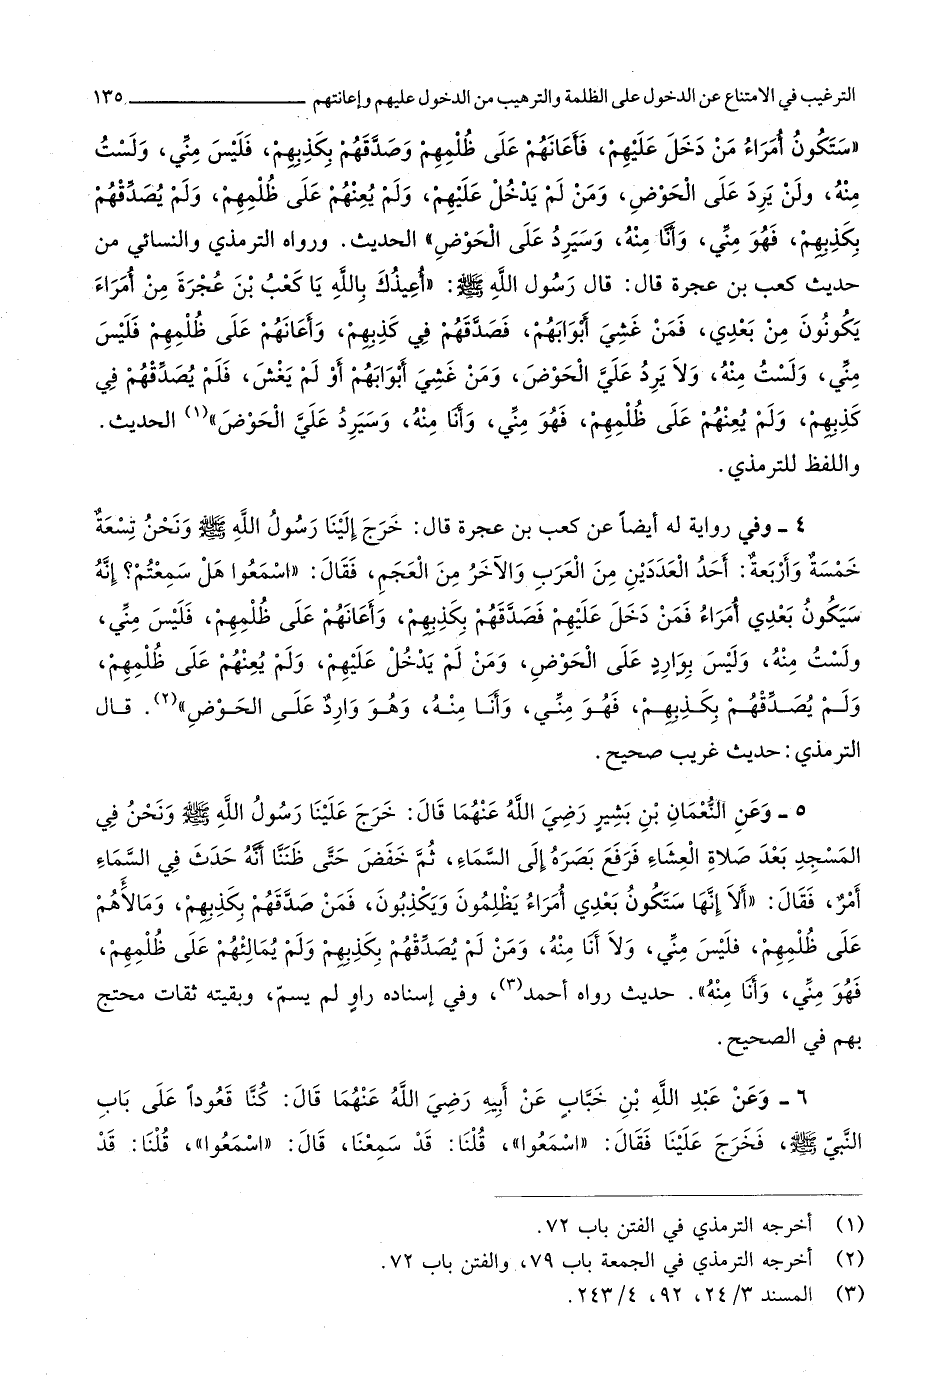 الترغيب في الامتناع عن الدخول على الظلمة والترهيب من الدخول عليهم وإعانتهم ــــــــــــ ١٣٥
«سَتَكُونُ أُمَرَاءُ مَنْ دَخَلَ عَلَيْهِمْ، فَأَعَانَهُمْ عَلَى ظُلْمِهِمْ وَصَدَّقَهُمْ بِكَذِبِهِمْ، فَلَيْسَ مِنِّي، وَلَسْتُ
مِنْهُ، ولَنْ يَرِدَ عَلَى الْحَوْضِ، وَمَنْ لَمْ يَدْخُلْ عَلَيْهِمْ، وَلَمْ يُعِنْهُمْ عَلَى ظُلْمِهِمْ، وَلَمْ يُصَدِّقْهُمْ
بِكَذِبِهِمْ، فَهُوَ مِنِّي، وَأَنَا مِنْهُ، وَسَيَرِدُ عَلَى الْحَوْضِ» الحديث. ورواه الترمذي والنسائي من
حديث كعب بن عجرة قال: قال رَسُول اللَّهِ ﷺ: «أُعِيذُكَ بِاللَّهِ يَا كَعْبُ بْنَ عُجْرَةَ مِنْ أُمَرَاءَ
يَكُونُونَ مِنْ بَعْدِي، فَمَنْ غَشِيَ أَبْوَابَهُمْ، فَصَدَّقَهُمْ فِي كَذِبِهِمْ، وَأَعَانَهُمْ عَلَى ظُلْمِهِمْ فَلَيْسَ
مِنِّي، وَلَسْتُ مِنْهُ، وَلاَ يَرِدُ عَلَيَّ الْحَوْضَ، وَمَنْ غَشِيَ أَبْوَابَهُمْ أَوْ لَمْ يَغْشَ، فَلَمْ يُصَدِّقْهُمْ فِي
كَذِبِهِمْ، وَلَمْ يُعِنْهُمْ عَلَى ظُلْمِهِمْ، فَهُوَ مِنِّي، وَأَنَا مِنْهُ، وَسَيَرِدُ عَلَيَّ الْحَوْضَ»(١) الحديث.
واللفظ للترمذي.
٤ ـ وفي رواية له أيضاً عن كعب بن عجرة قال: خَرَجَ إِلَيْنَا رَسُولُ اللَّهِ ﷺ وَنَحْنُ تِسْعَةٌ
خَمْسَةٌ وَأَرْبَعةٌ: أَحَدُ الْعَدَدَيْنِ مِنَ الْعَرَبِ وَالآخَرُ مِنَ الْعَجَمِ، فَقَالَ: «اسْمَعُوا هَلْ سَمِعْتُمْ؟ إِنَّهُ
سَيَكُونُ بَعْدِي أُمَرَاءُ فَمَنْ دَخَلَ عَلَيْهِمْ فَصَدَّقَهُمْ بِكَذِبِهِمْ، وَأَعَانَهُمْ عَلَى ظُلْمِهِمْ، فَلَيْسَ مِنِّي،
ولَسْتُ مِنْهُ، وَلَيْسَ بِوَارِدٍ عَلَى الْحَوْضِ، وَمَنْ لَمْ يَدْخُلْ عَلَيْهِمْ، وَلَمْ يُعِنْهُمْ عَلَى ظُلْمِهِمْ،
وَلَمْ يُصَدِّقْهُمْ بِكَذِبِهِمْ، فَهُوَ مِنِّي، وَأَنَا مِنْهُ، وَهُوَ وَارِدٌ عَلَى الحَوْضِ»(٢). قال
الترمذي: حديث غريب صحيح.
٥ ـ وَعَنِ النُّعْمَانِ بْنِ بَشِيرٍ رَضِيَ اللَّهُ عَنْهُمَا قَالَ: خَرَجَ عَلَيْنَا رَسُولُ اللَّهِ ﷺ وَنَحْنُ فِي
المَسْجِدِ بَعْدَ صَلاةِ الْعِشَاءِ فَرَفَعَ بَصَرَهُ إِلَى السَّمَاءِ، ثُمَّ خَفَضَ حَتَّى ظَنَنَّا أَنَّهُ حَدَثَ فِي السَّمَاءِ
أَمْرٌ، فَقَالَ: «أَلاَ إِنَّهَا سَتَكُونُ بَعْدِي أُمَرَاءُ يَظْلِمُونَ وَيَكْذِبُونَ، فَمَنْ صَدَّقَهُمْ بِكَذِبِهِمْ، وَمَالأَهُمْ
عَلَى ظُلْمِهِمْ، فلَيْسَ مِنِّي، وَلاَ أَنَا مِنْهُ، وَمَنْ لَمْ يُصَدِّقْهُمْ بِكَذِبِهِمْ وَلَمْ يُمَالِئْهُمْ عَلَى ظُلْمِهِمْ،
فَهُوَ مِنِّي، وَأَنَا مِنْهُ». حديث رواه أحمد(٣)، وفي إسناده راوٍ لم يسمّ، وبقيته ثقات محتج
بهم في الصحيح.
٦ ـ وَعَنْ عَبْدِ اللَّهِ بْنِ خَبَّابٍ عَنْ أَبِيهِ رَضِيَ اللَّهُ عَنْهُمَا قَالَ: كُنَّا قُعُوداً عَلَى بَابِ
النَّبِيّ ﷺ، فَخَرَجَ عَلَيْنَا فَقَالَ: «اسْمَعُوا»، قُلْنَا: قَدْ سَمِعْنَا، قَالَ: «اسْمَعُوا»، قُلْنَا: قَدْ
(١) أخرجه الترمذي في الفتن باب ٧٢.
(٢) أخرجه الترمذي في الجمعة باب ٧٩، والفتن باب ٧٢.
(٣) المسند ٢٤/٣، ٩٢، ٢٤٣/٤.